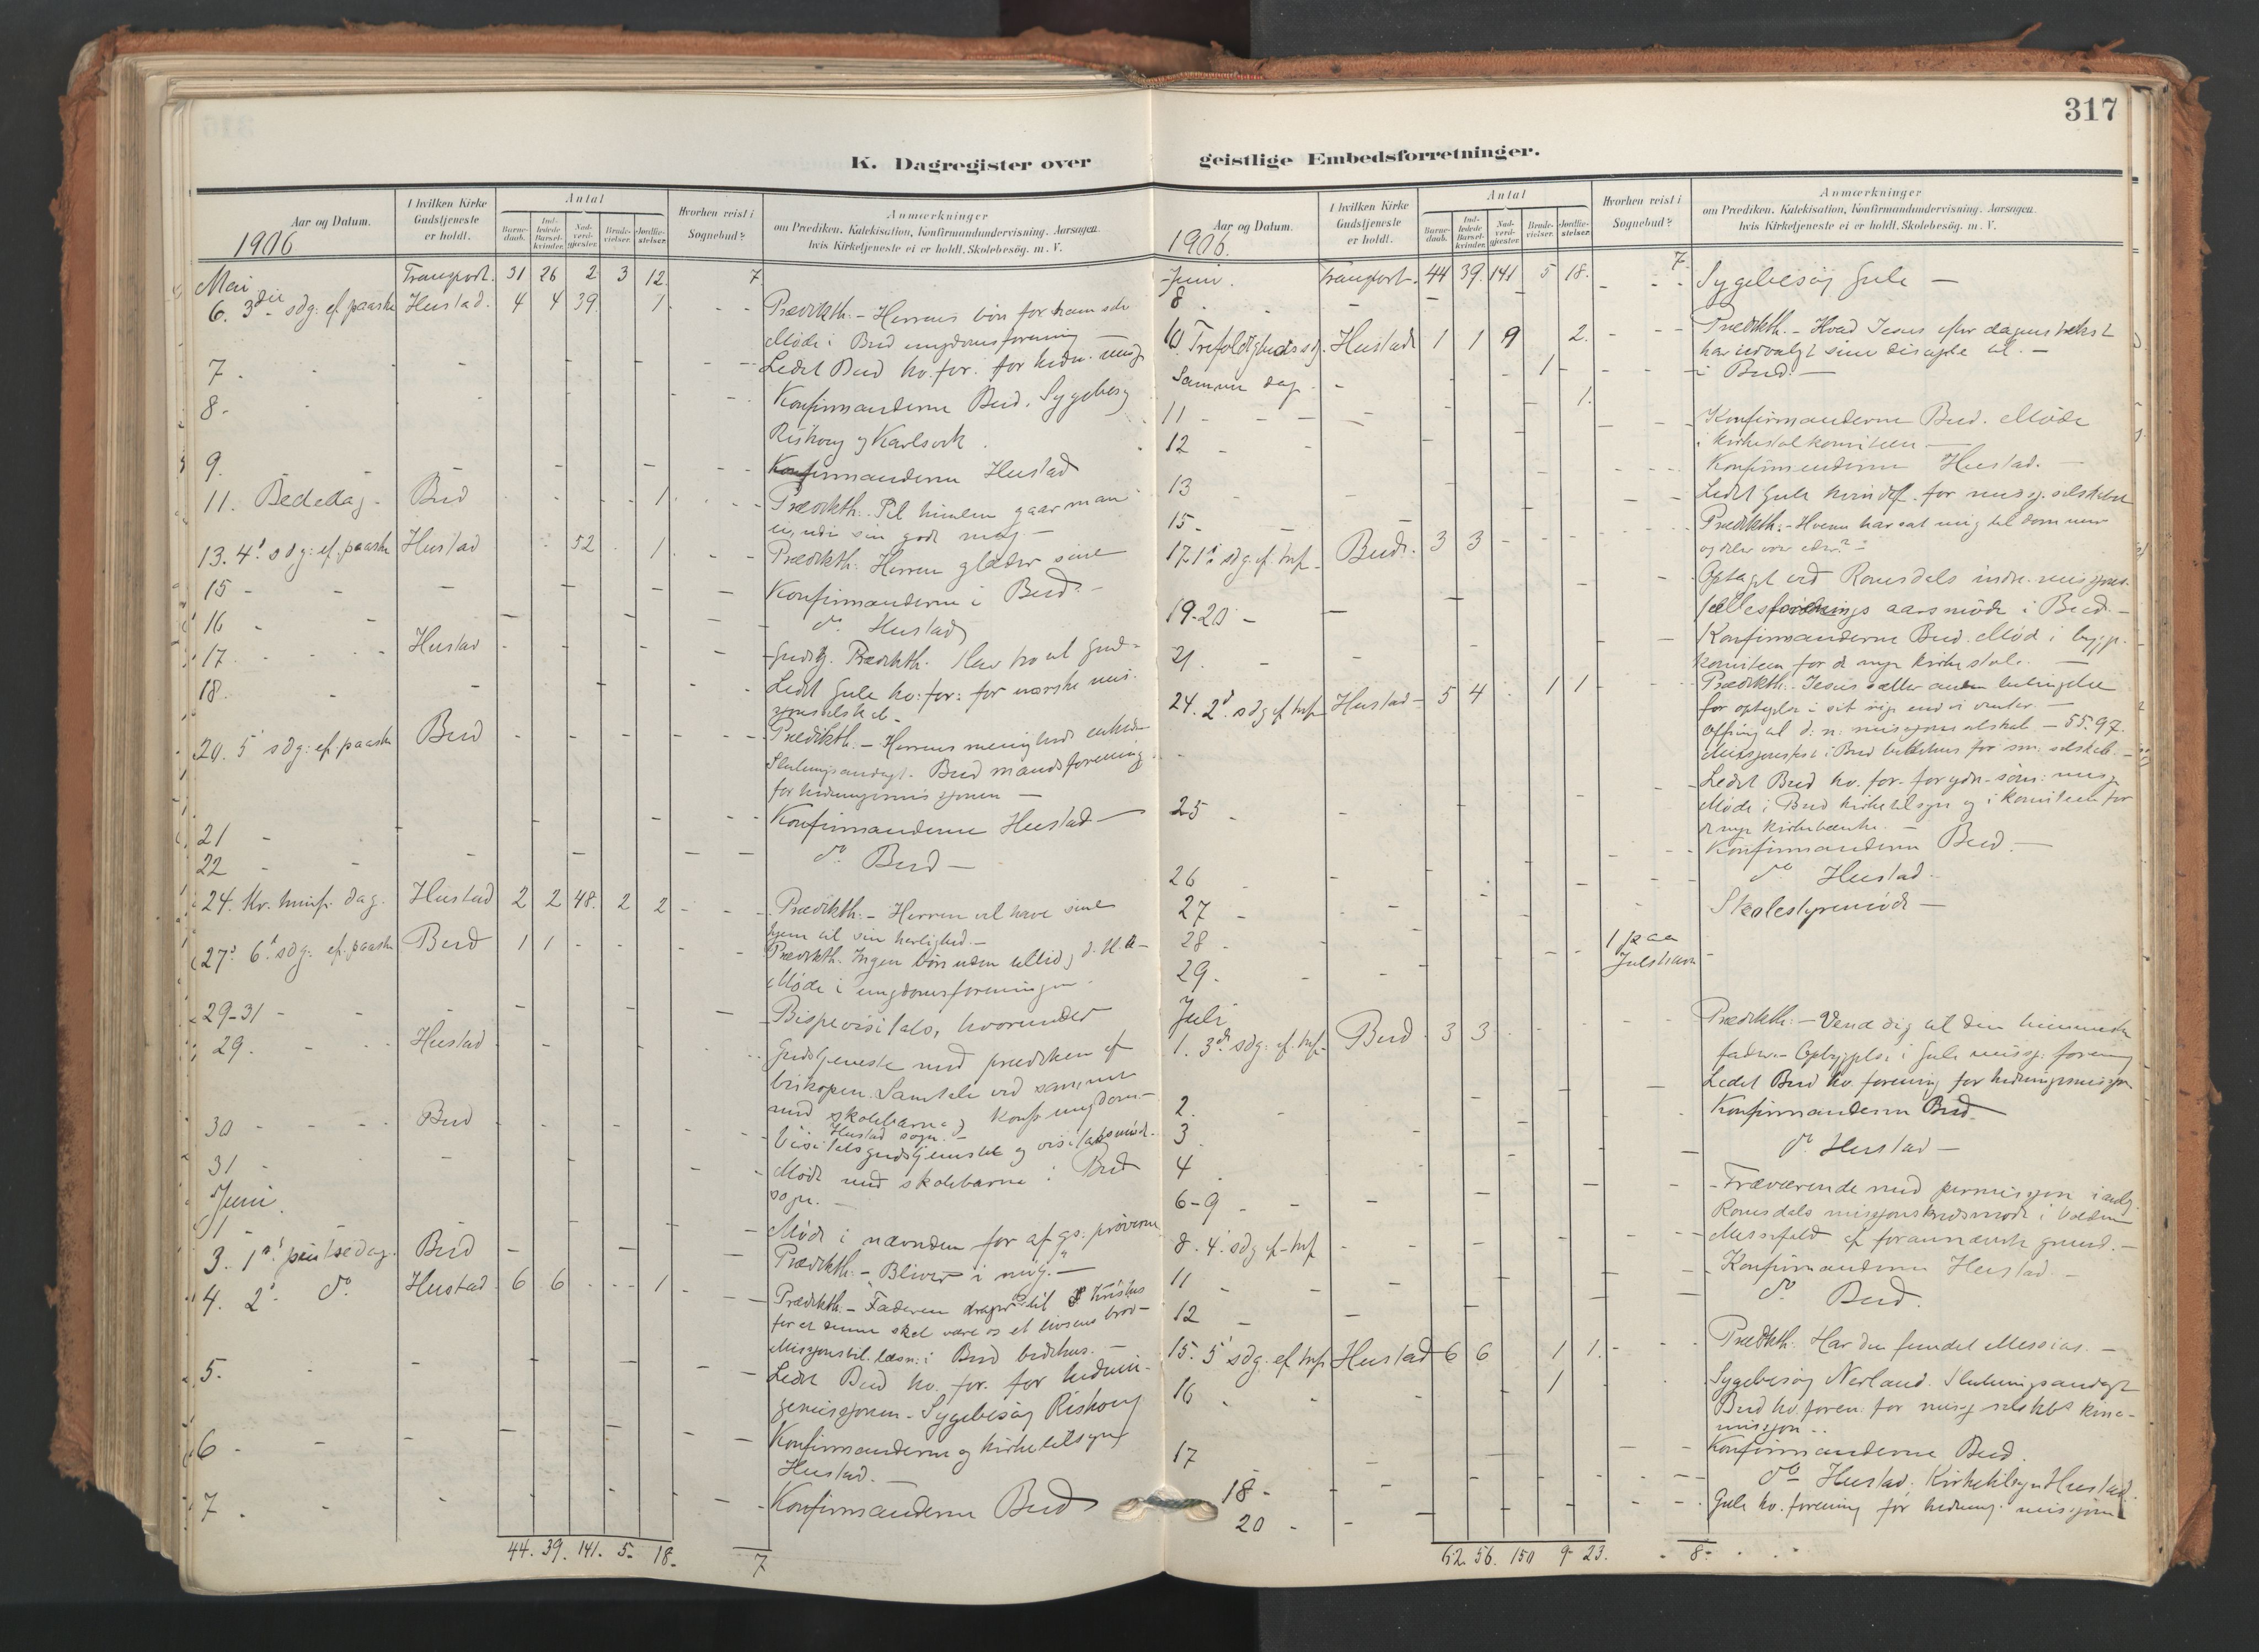 317
K. Dagregister over
geistlige Embedsforretninger.
Aar og Datum.
1906
I hvilken Kirke Gudstjeneste er holdt.
Antal
Barne-daab.
Ind-ledede Barsel-kvinder.
Nad-verd-gjester.
Brude-vielser.
Jordfæ-stelser.
Hvorhen reist i Sognebud?
Anmærkninger
om Prædiken, Katekisation, Konfirmandundervisning, Aarsagen,
hvis Kirketjeneste ei er holdt, Skolebesög. m. V.
Mai Transport. 31 26 2 3 12. 7
6. 3die sdg: ef. paaske Hustad. 4 4 39. 1 - - Prædikth: - Herrens bön for ham
Möde i Bud ungdomsforening -
7. Ledet Bud kv. for. for
8. Konfirmanderne Bud. Sygebesög
Riskoug og Karlsvik.
9. Konfirmanderne Hustad
11. Bededag - Bud 1. Prædikth: Til himlen gaar man
13. 4' sdg: ef. paaske Hustad 52 1 Prædikth: Herren glæder sine
15 - Konfirmanderne i Bud -
16 - do Hustad
17. Hustad Gudstj. Prædikth.
18. Ledet Gule kv: for: for norske
20. 5' sdg: ef. paaske Bud Prædikth. - Herrens menigheds
Slutningsandagt. Bud mandsforening
for hedningemissjonen -
21 - Konfirmanderne Hustad -
22 - do Bud -
24. Kr. himf. dag. Hustad 2 2 48. 2 2 Prædikth: - Herren vil have sine
hjem til sin herlighed -
27' 6' sdg: ef. paaske Bud 1 1 Prædikth. Ingen bön uden
Möde i ungdomsforeningen -
29-31 - Bispevisitats, hvorunder
29. Hustad Gudstjeneste med prædiken af
biskopen. Samtale ved samme
med skolebarna og konf. ungdom -
Hustad sogn. -
30 Bud Visitatsgudstjeneste og visitatsmöde.
31 - Möde med skolebarna i Bud
sogn. -
Juni.
1 - Möde i nævnden for afgs. pröverne
3. 1ste pintsedag. Bud Prædikth: - "Bliver i mig." -
4. 2' do Hustad 6 6 1 Prædikth: - Faderen drager til Kristus
for at denne skal være os et livsens bröd -
Missjonstil. læsn: i Bud bedehus. -
5. Ledet Bud kv. for. for hednin-
gemissjonen - Sygebesög Riskoug
6 - Konfirmanderne og kirketilsyn
Hustad. -
7. Konfirmanderne Bud
44. 39. 141. 5. 18. 7
Aar og Datum.
1906.
I hvilken Kirke Gudstjeneste er holdt.
Antal
Barne-daab.
Ind-ledede Barsel-kvinder.
Nad-verd-gjester.
Brude-vielser.
Jordfæ-stelser.
Hvorhen reist i Sognebud?
Anmærkninger
om Prædiken, Katekisation, Konfirmandundervisning, Aarsagen,
hvis Kirketjeneste ei er holdt, Skolebesög. m. V.
Juni. Transport. 44 39. 141 5 18. 7.
8 Sygebesög Gule -
10. Trefoldighedssdg. Hustad 1 1 9 2. Prædikth. - Hvad Jesus efter dagens tekst
har udvalgt sine disciple til. -
Samme dag. 1 - i Bud. -
11 - 1.
12 - Konfirmanderne Bud. Möde
i
13 Konfirmanderne Hustad. -
15 - Ledet Gule kvindef. for
17. 1' sdg. ef. tref. Bud. 3 3 Prædikth. - Hvem har sat mig til dommer
og deler over eder? -
19-20 - Optagt ved Romsdals indre-missjons-
aarsmöde i Bud. -
21. - Konfirmanderne Bud. Möde i bygg.
komiteen for de nye kirkestole. -
24. 2' sdg. ef. tref. Hustad - 5 4 1 1 Prædikth: Jesus sætter anden betingelse
for optagelse i sit rige end vi venter. -
Offring til d. n. missjonsselskab - 55.97.
Missjonsfest i Bud bedehus for sm: selskab. -
25 - Ledet Bud kv. for.
Möde i Bud kirketilsyn og i komiteen for
de nye kirkebænke. -
26 Konfirmanderne Bud. -
27 - do Hustad -
28 - Skolestyremöde -
29. 1 paa
Julshavn
Juli
1. 3de sdg: ef. tref. Bud 3 3 Prædikth: - Vend dig til den himmelske
fader. - Opbyggelse i Gule missj: forening
2. Ledet Bud kv. forening for hedningemissjon
3. Konfirmanderne Bud. -
4 do Hustad -
6-9 - Fraværende med permissjon
Romsdals missjonskredsmöde i
8. 4' sdg ef. tref Messefald af forannævnte grund. -
11 - Konfirmanderne Hustad. -
12 - do Bud.
15. 5' sdg. ef. tref. Hustad 6 6 1 1. Prædikth: Har du fundet Messias. -
16 1 Sygebesög Nerland. Slutningsandagt
Bud kv. foren. for missj selskabs kina-
missjon. -
17 Konfirmanderne Bud
18 - do Hustad. Kirketilsyn Hustad.
20 - Gule kv. forening for hedning. missjonen
62. 56. 150 9 - 23. 8 -